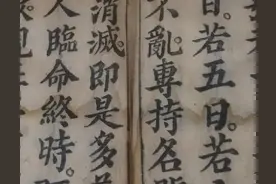 日。若五日。若
不亂。專持名
消滅。即是多
人臨命終時。